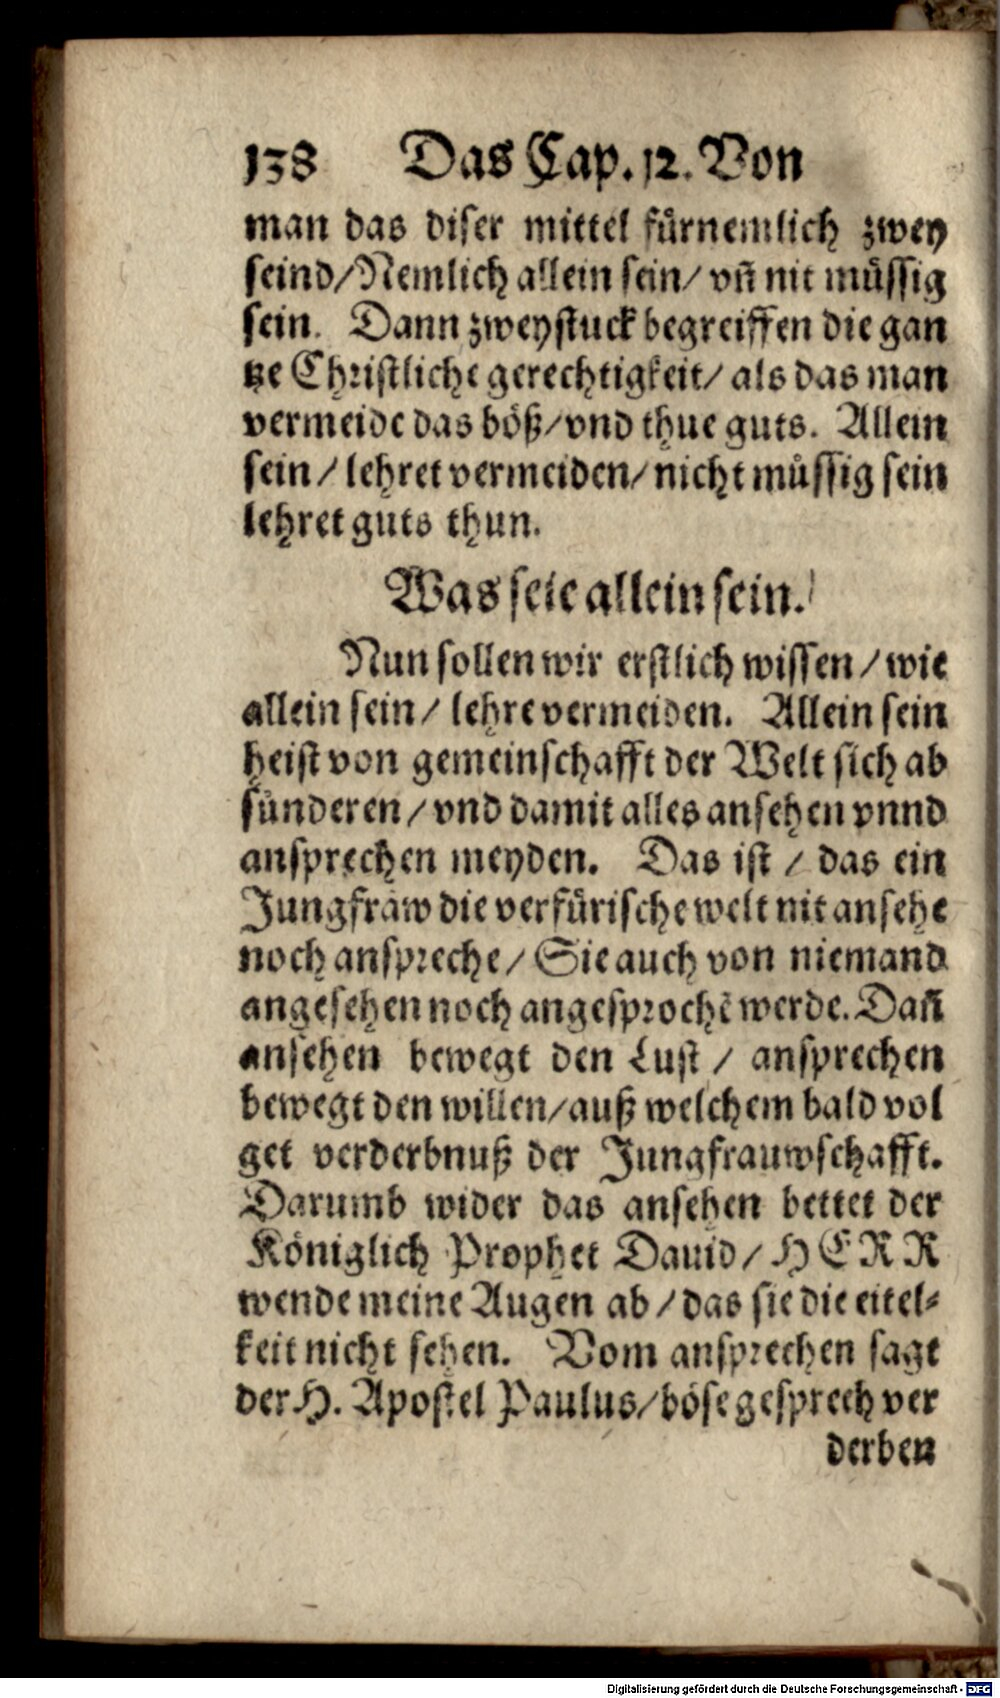 138 Das Cap. 12. Von
man das diser mittel fürnemlich zwey
seind/Nemlich allein sein/ vñ nit müssig
sein. Dann zwey stuck begreiffen die gan
tze Christliche gerechtigkeit/ als das man
vermeide das böß/vnd thue guts. Allein
sein/ lehret vermeiden/nicht müssig sein
lehret guts thun.
Was seie allein sein.
Nun sollen wir erstlich wissen/ wie
allein sein/ lehre vermeiden. Allein sein
heist von gemeinschafft der Welt sich ab
sünderen/ vnd damit alles ansehen vnnd
ansprechen meyden. Das ist/ das ein
Jungfraw die verfürische welt nit ansehe
noch anspreche/ Sie auch von niemand
angesehen noch angesprochẽ werde. Dañ
ansehen bewegt den Lust/ ansprechen
bewegt den willen/auß welchem bald vol
get verderbnuß der Jungfrauwschafft.
Darumb wider das ansehen bettet der
Königlich Prophet Dauid/ HERR
wende meine Augen ab/ das sie die eitel-
keit nicht sehen. Vom ansprechen sagt
der H. Apostel Paulus/böse gesprech ver
derben
Digitalisierung gefördert durch die Deutsche Forschungsgemeinschaft - DFG